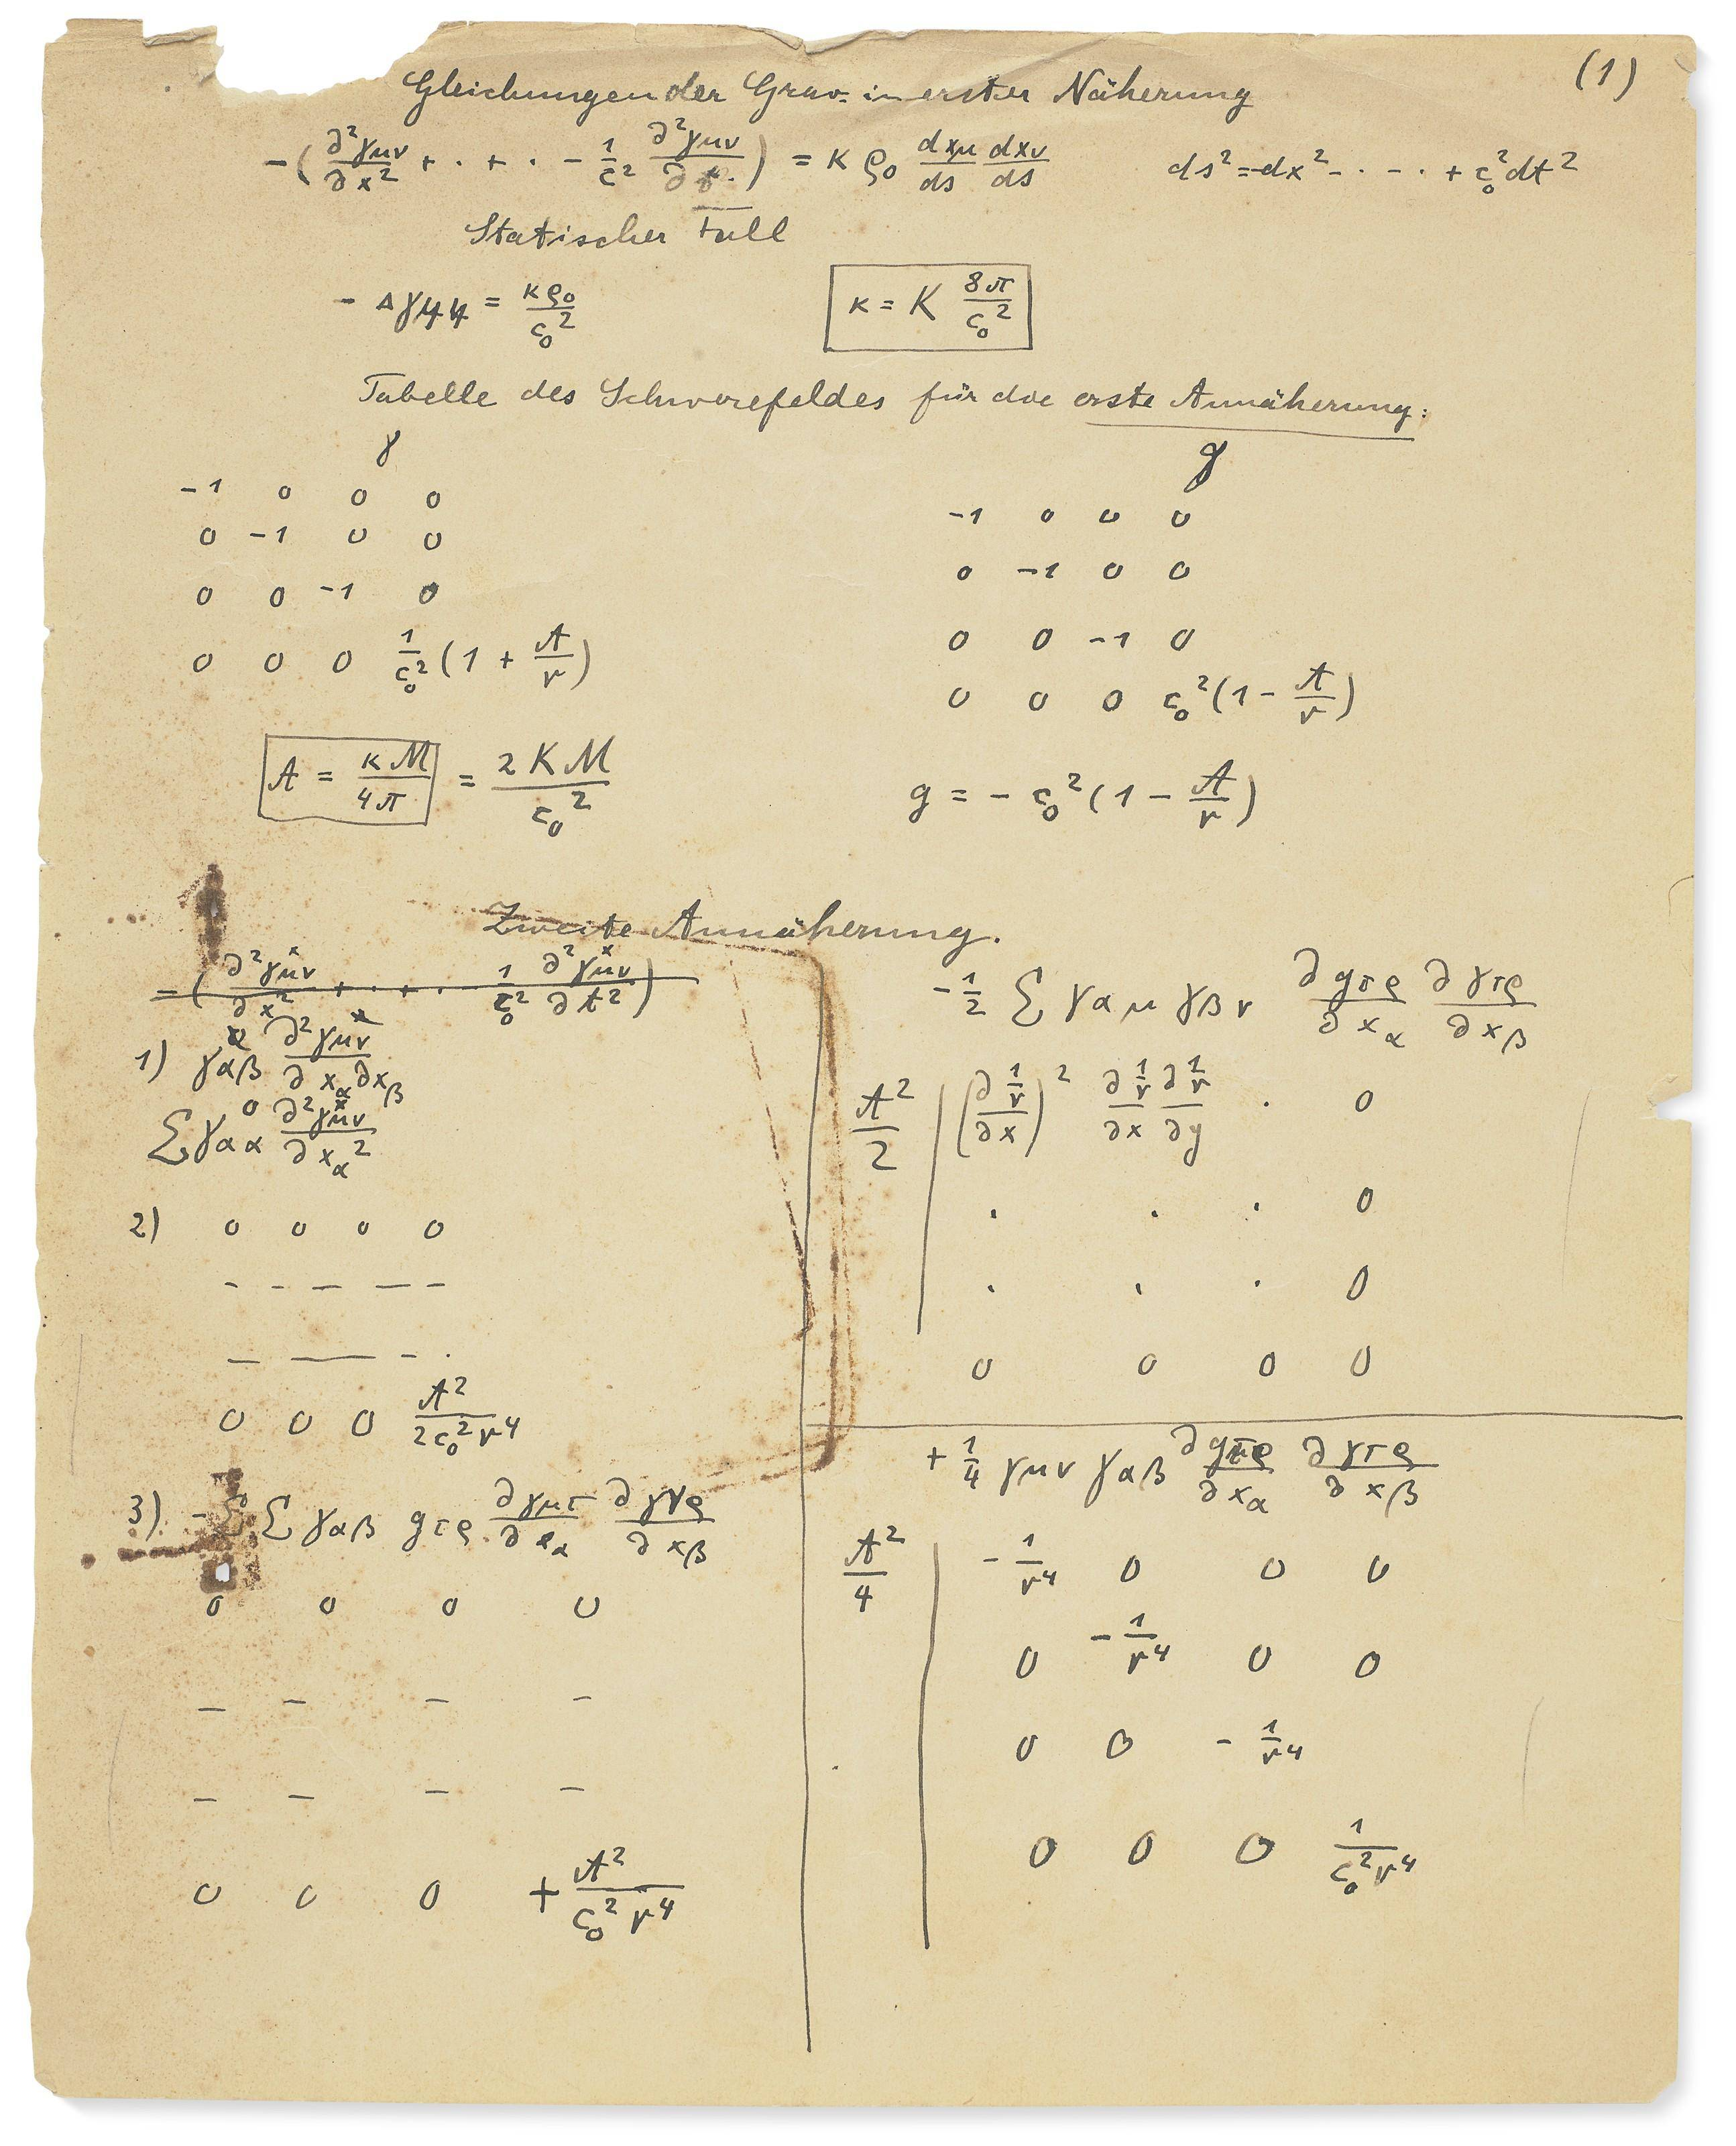 (1)
Gleichungen der Grav. in erster Näherung
−(∂²γμν/∂x² + · + · − 1/c² ∂²γμν/∂t·) = κ ρ₀ dxμ/ds dxν/ds   ds² = −dx² − · − · + c₀²dt²
Statischer Fall
− Δγ44 = κρ₀/c₀²   κ = K 8π/c₀²
Tabelle des Schwerefeldes für die erste Annäherung:
γ   g
−1 0 0 0   −1 0 0 0
0 −1 0 0   0 −1 0 0
0 0 −1 0   0 0 −1 0
0 0 0 1/c₀²(1 + A/r)   0 0 0 c₀²(1 − A/r)
A = κM/4π = 2KM/c₀²   g = − c₀²(1 − A/r)
Zweite Annäherung.
−(∂²γ×μν/∂x² + · + · − 1/c₀² ∂²γ×μν/∂t²)
1) γαβ ∂²γ×μν/∂xα∂xβ
Σ γ⁰αα ∂²γ×μν/∂xα²
2) 0 0 0 0
– - – — –
— —— - ·
0 0 0 A²/2c₀²r⁴
3) −Σ Σ γαβ gτρ ∂γμτ/∂xα ∂γνρ/∂xβ
0 0 0 0
– – – –
– – – –
0 0 0 +A²/c₀²r⁴
−1/2 Σ γαμ γβν ∂gτρ/∂xα ∂γτρ/∂xβ
A²/2 | (∂1/r/∂x)² ∂1/r/∂x ∂1/r/∂y · 0
· · · 0
· · · 0
0 0 0 0
+ 1/4 γμν γαβ ∂gτρ/∂xα ∂γτρ/∂xβ
A²/4 | −1/r⁴ 0 0 0
0 −1/r⁴ 0 0
0 0 −1/r⁴
0 0 0 1/c₀²r⁴